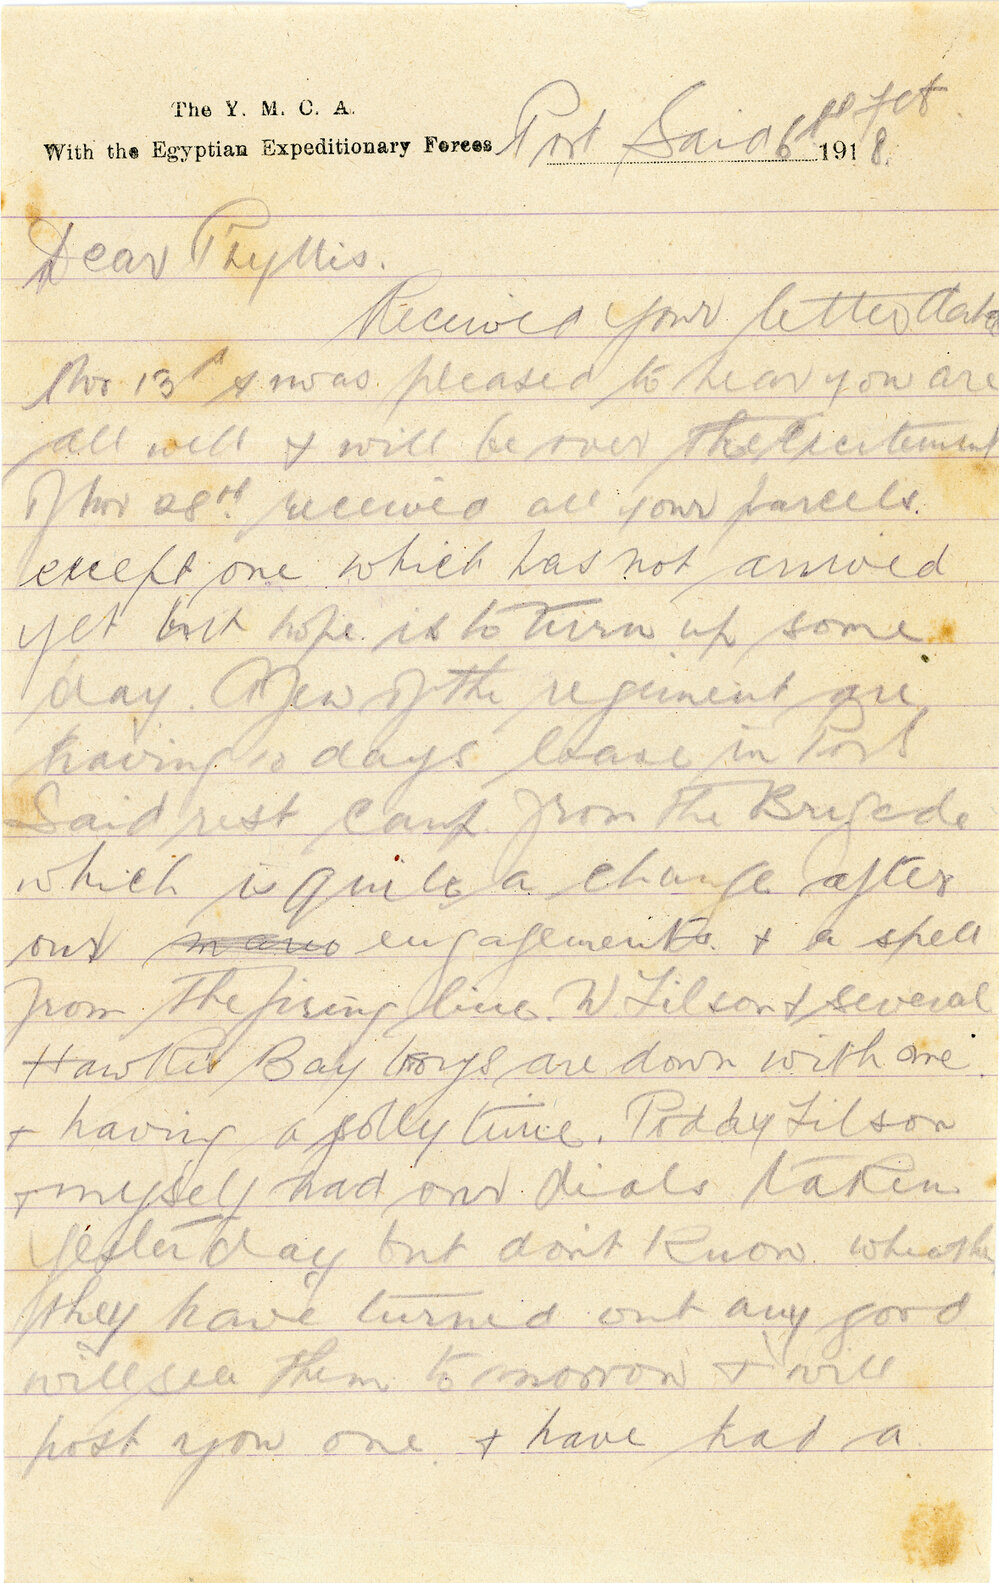 The Y. M. C. A.
With the Egyptian Expeditionary Forces Port Said 6th Feb 1918.
Dear Phyllis.
Received your letter date
Nov 13th & was pleased to hear you are
all well & will be over the Excitement
of Nov 28th. received all your parcels.
except one which has not arrived
yet but hope is to turn up some
day. A few of the regiment are
having 10 days leave in Port
Said rest camp from the Brigade
which is quite a change after
our engagements. & a spell
from the firing line. W Tilson & several
Hawkes Bay boys are down with me.
& having a jolly time. Poddy Tilson
& myself had our dials taken
yesterday but don't know wheathe
they have turned out any good
will see them tomorrow & will
post you one & have had a